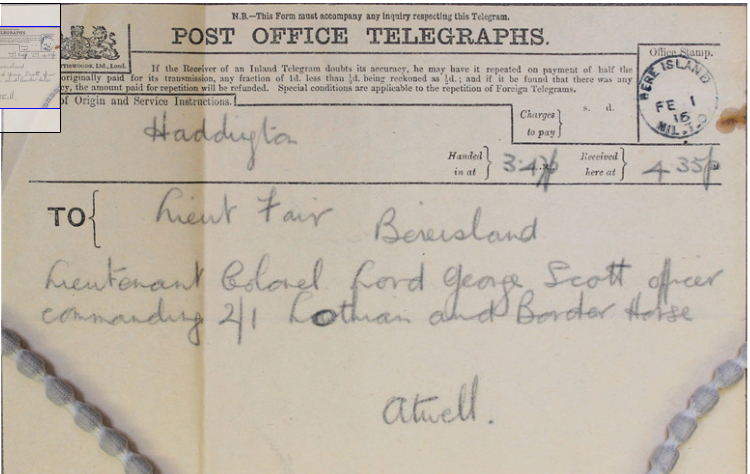 N.B.—This Form must accompany any inquiry respecting this Telegram.
POST OFFICE TELEGRAPHS.
If the Receiver of an Inland Telegram doubts its accuracy, he may have it repeated on payment of half the
originally paid for its transmission, any fraction of 1d. less than ½d. being reckoned as ½d.; and if it be found that there was any
cy, the amount paid for repetition will be refunded. Special conditions are applicable to the repetition of Foreign Telegrams.
Office Stamp.
BERE ISLAND
FE 1
16
MIL. T.O
of Origin and Service Instructions.
Charges to pay
s. d.
Haddington
Handed in at 3.4
Received here at 4 35p
TO Lieut Fair Bereisland
Lieutenant Colonel Lord George Scott officer
commanding 2/1 Lothian and Border Horse
Atwell.